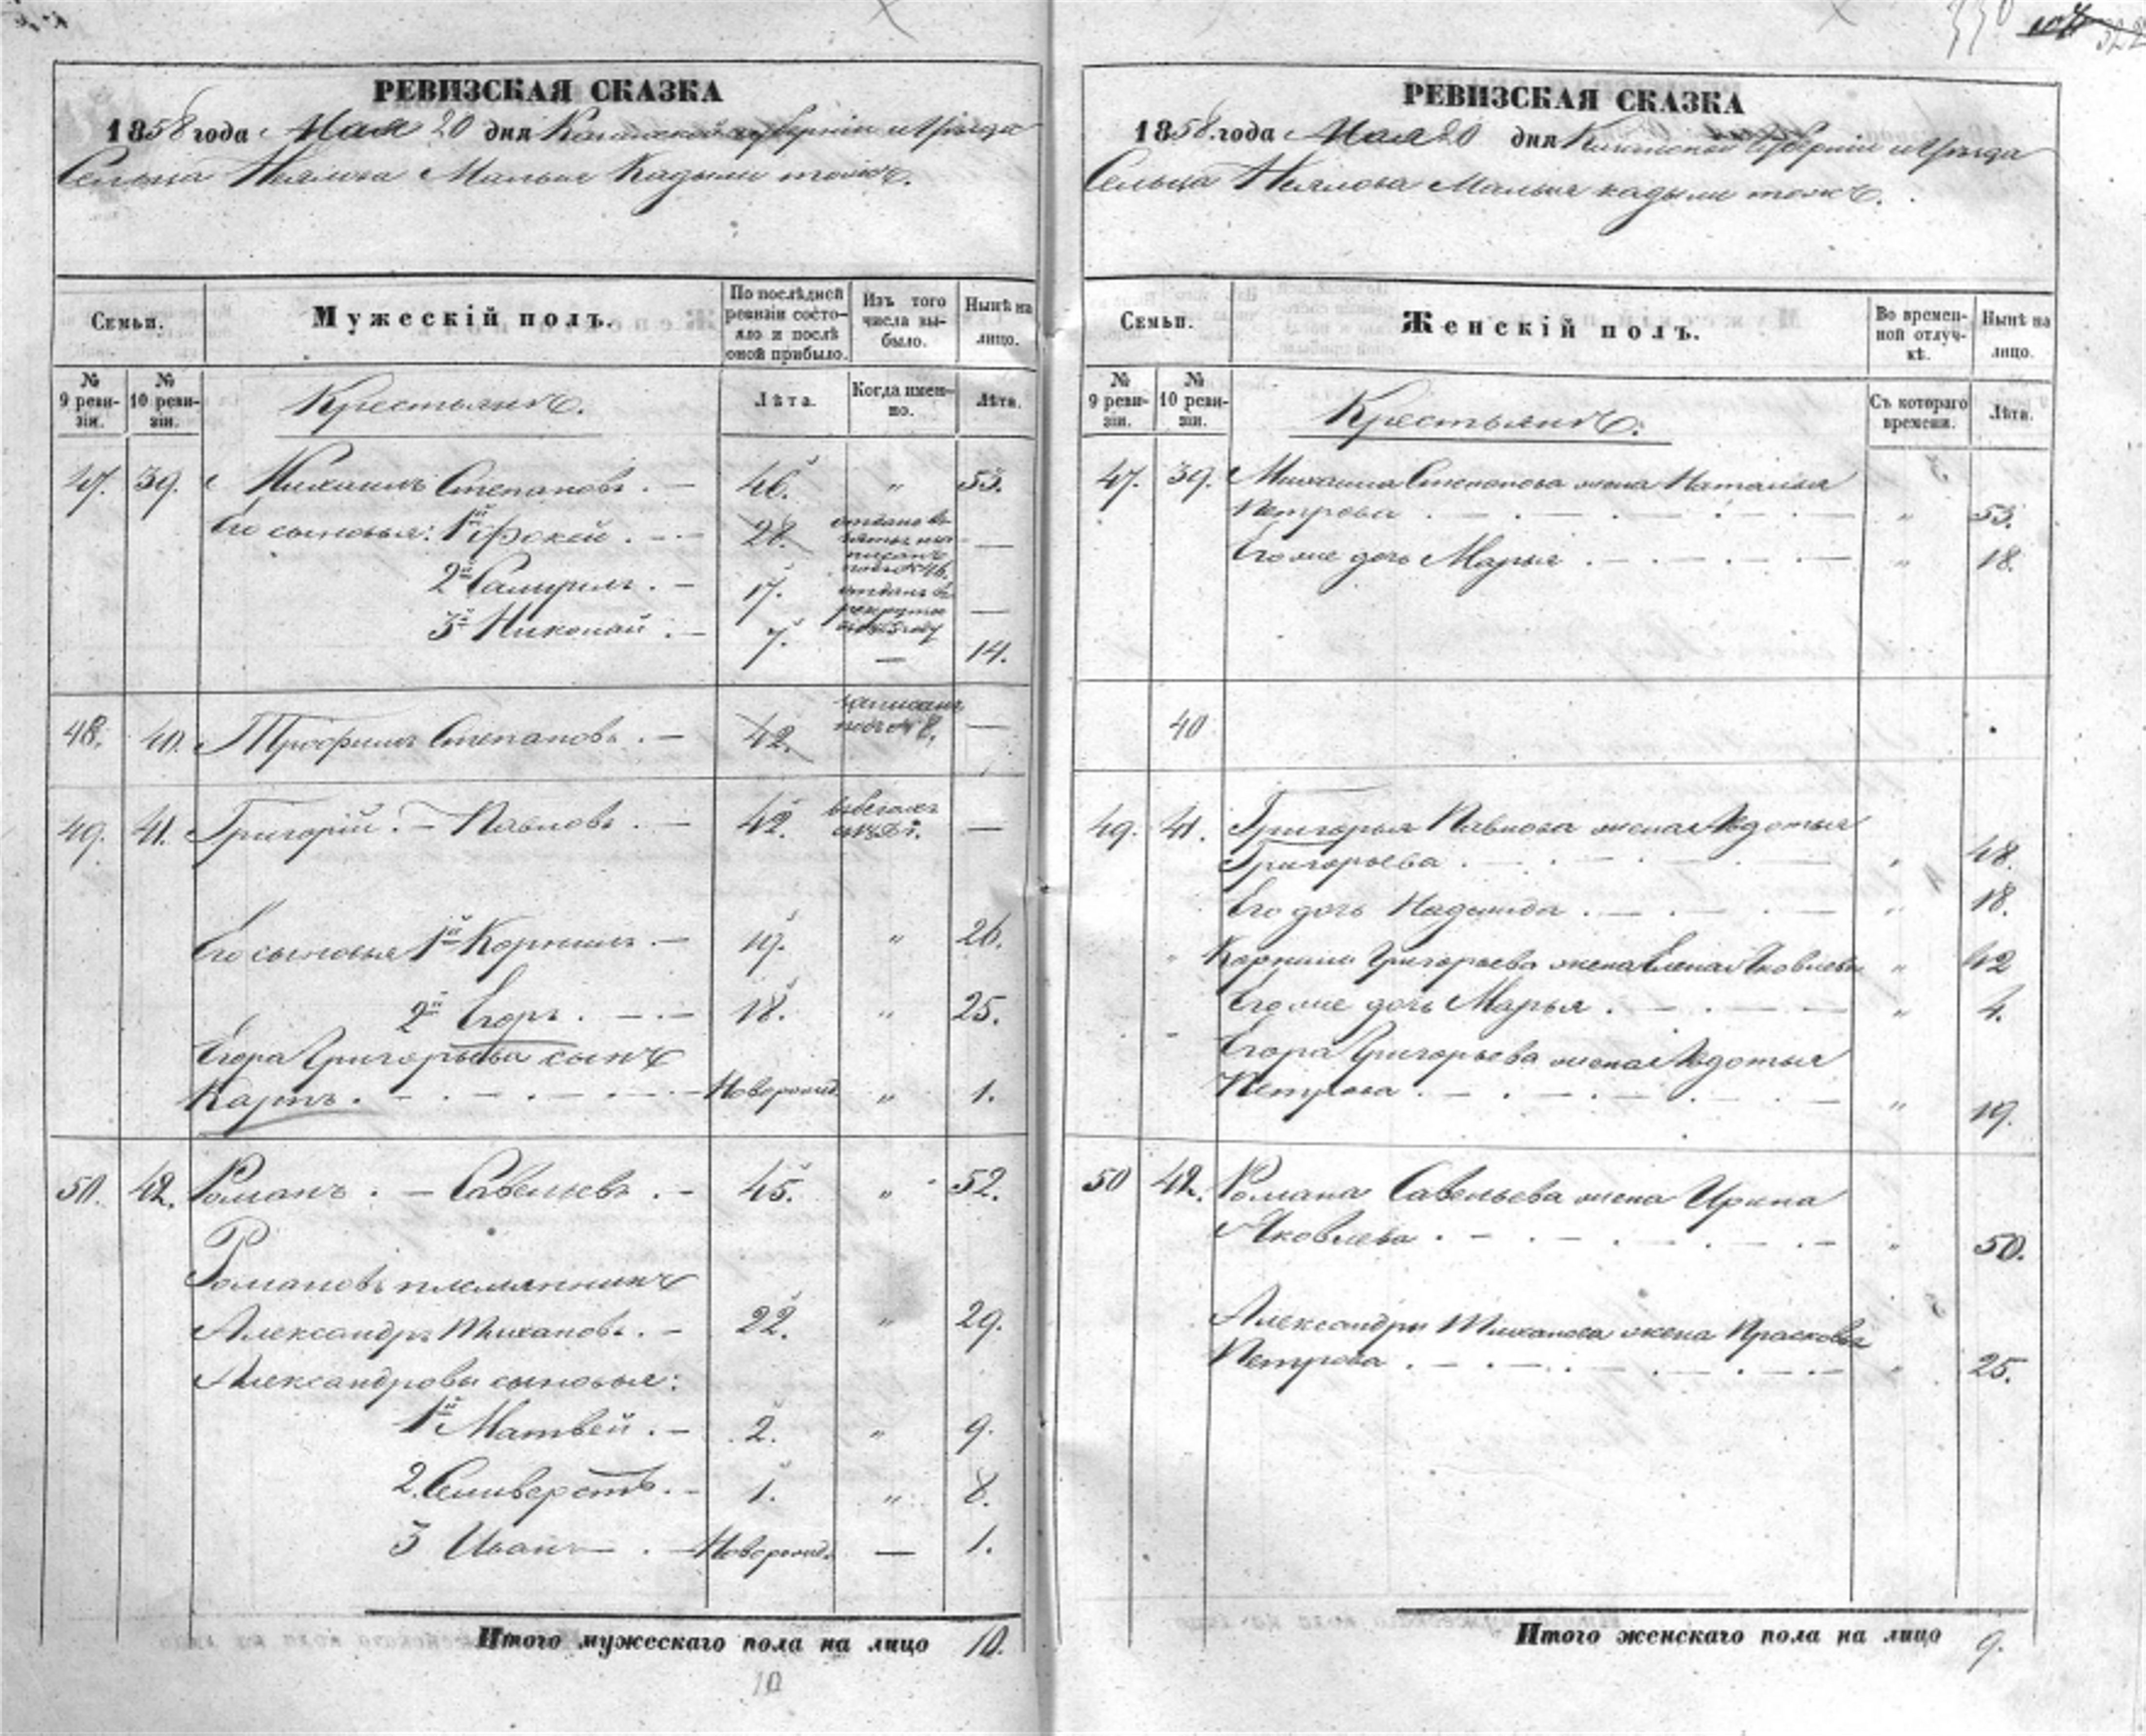 330
РЕВИЗСКАЯ СКАЗКА
1858 года Мая 20 дня Казанской губернии и Уѣзда
Сельца Малыя Кадыли тожъ.
Семьи.
Мужескій полъ.
По послѣдней ревизіи состояло и послѣ оной прибыло.
Изъ того числа выбыло.
Нынѣ на лицо.
№ 9 ревизіи.
№ 10 ревизіи.
Крестьянъ.
Лѣта.
Когда именно.
Лѣта.
47. 39. Михаилъ Степановъ . — 46. „ 53.
Его сыновья: 1й Фокей . — 28. —
отданъ въ зяты
писанъ
подъ № 46.
2й Самуилъ . — 17. —
отданъ въ
рекруты
3й Николай . — 7. — 14.
48. 40. Трофимъ Степановъ . — 42. —
записанъ
подъ № 8.
49. 41. Григорій . — Павловъ . — 42. —
Его сыновья 1й Корнилъ . — 19. „ 26.
2й Егоръ . — 18. „ 25.
Егора Григорьева сынъ
Карпъ . — Новорожд. „ 1.
50. 42. Романъ . — Савельевъ . — 45. „ 52.
Романовъ племянникъ
Александръ Тихановъ . — 22. „ 29.
Александровы сыновья:
1й Матвей . — 2. „ 9.
2. Селиверстъ . — 1. „ 8.
3 Иванъ — . — Новорожд. — 1.
Итого мужескаго пола на лицо 10.
10
РЕВИЗСКАЯ СКАЗКА
1858. года Мая 20 дня Казанской Губерніи и Уѣзда
Сельца Малыя кадыли тожъ.
Семьи.
Женскій полъ.
Во временной отлучкѣ.
Нынѣ на лицо.
№ 9 ревизіи.
№ 10 ревизіи.
Крестьянъ:
Съ котораго времени.
Лѣта.
47. 39. Михаила Степанова жена Наталья
Петрова . — „ 53.
Его же дочь Марья . — „ 18.
40
49. 41. Григорья Павлова жена Авдотья
Григорьева . — „ 48.
Его дочь Надежда . — „ 18.
Корнила Григорьева жена Елена Яковлева „ 42
Его же дочь Марья . — „ 4.
Егора Григорьева жена Авдотья
Петрова . — „ 19.
50 42. Романа Савельева жена Ирина
Яковлева . — „ 50.
Александры Тиханова жена Прасковья
Петрова . — „ 25.
Итого женскаго пола на лицо 9.